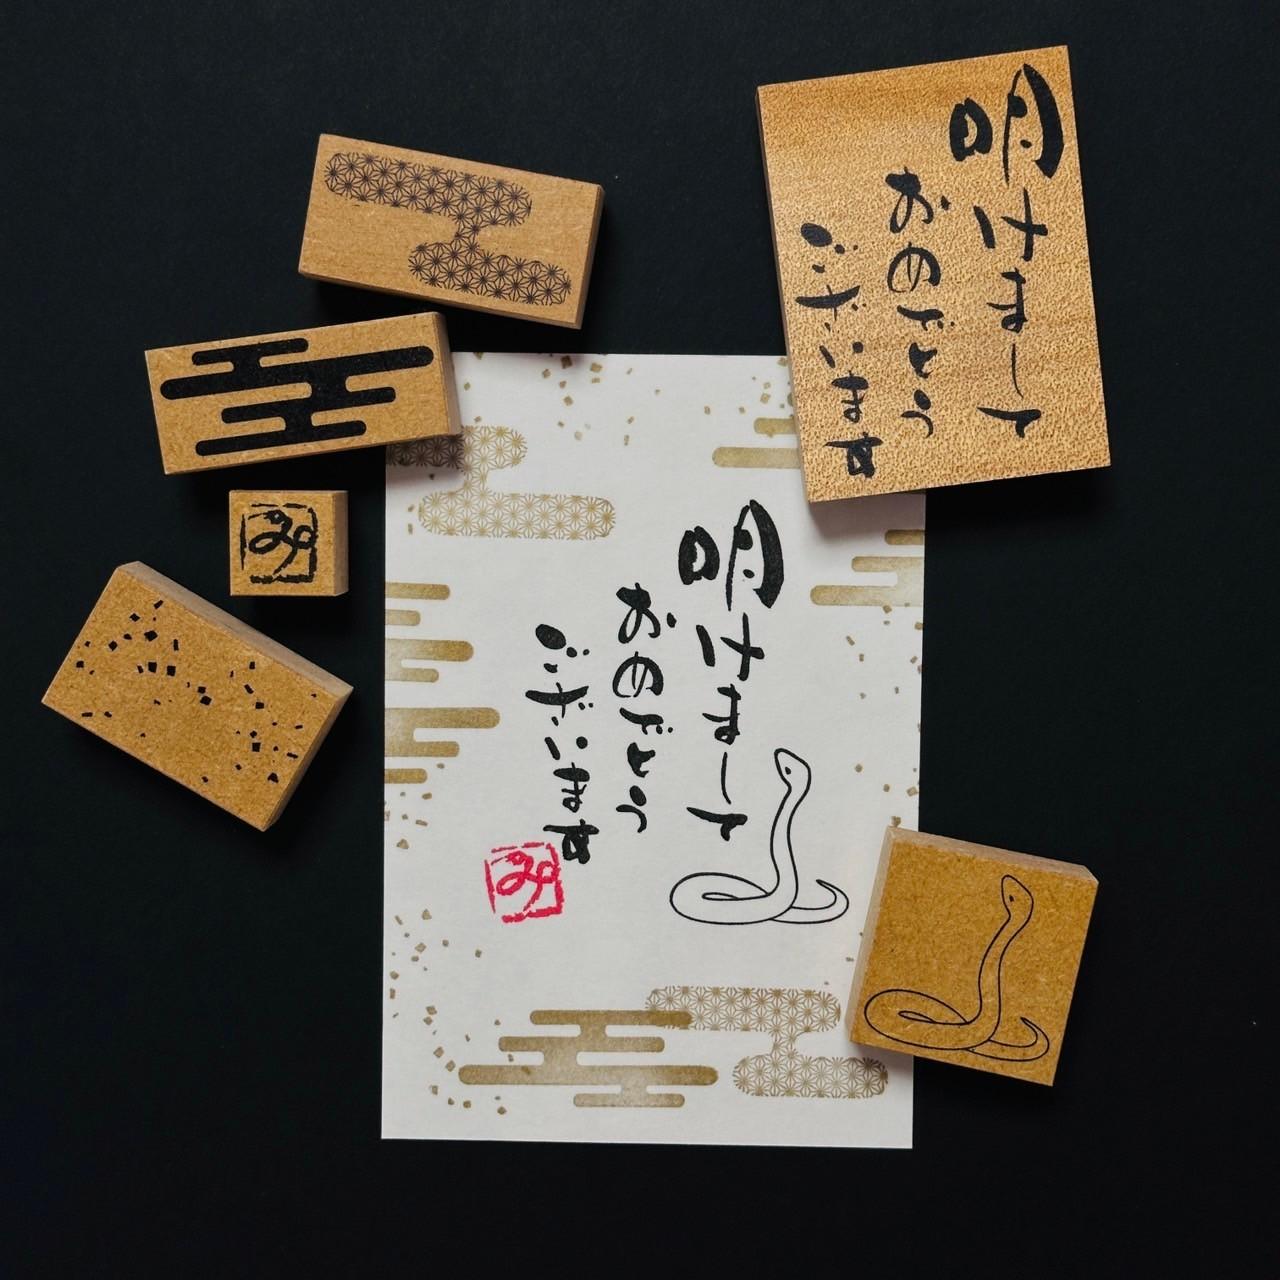 明けまして
おめでとう
ございます
明けまして
おめでとう
ございます
み
み